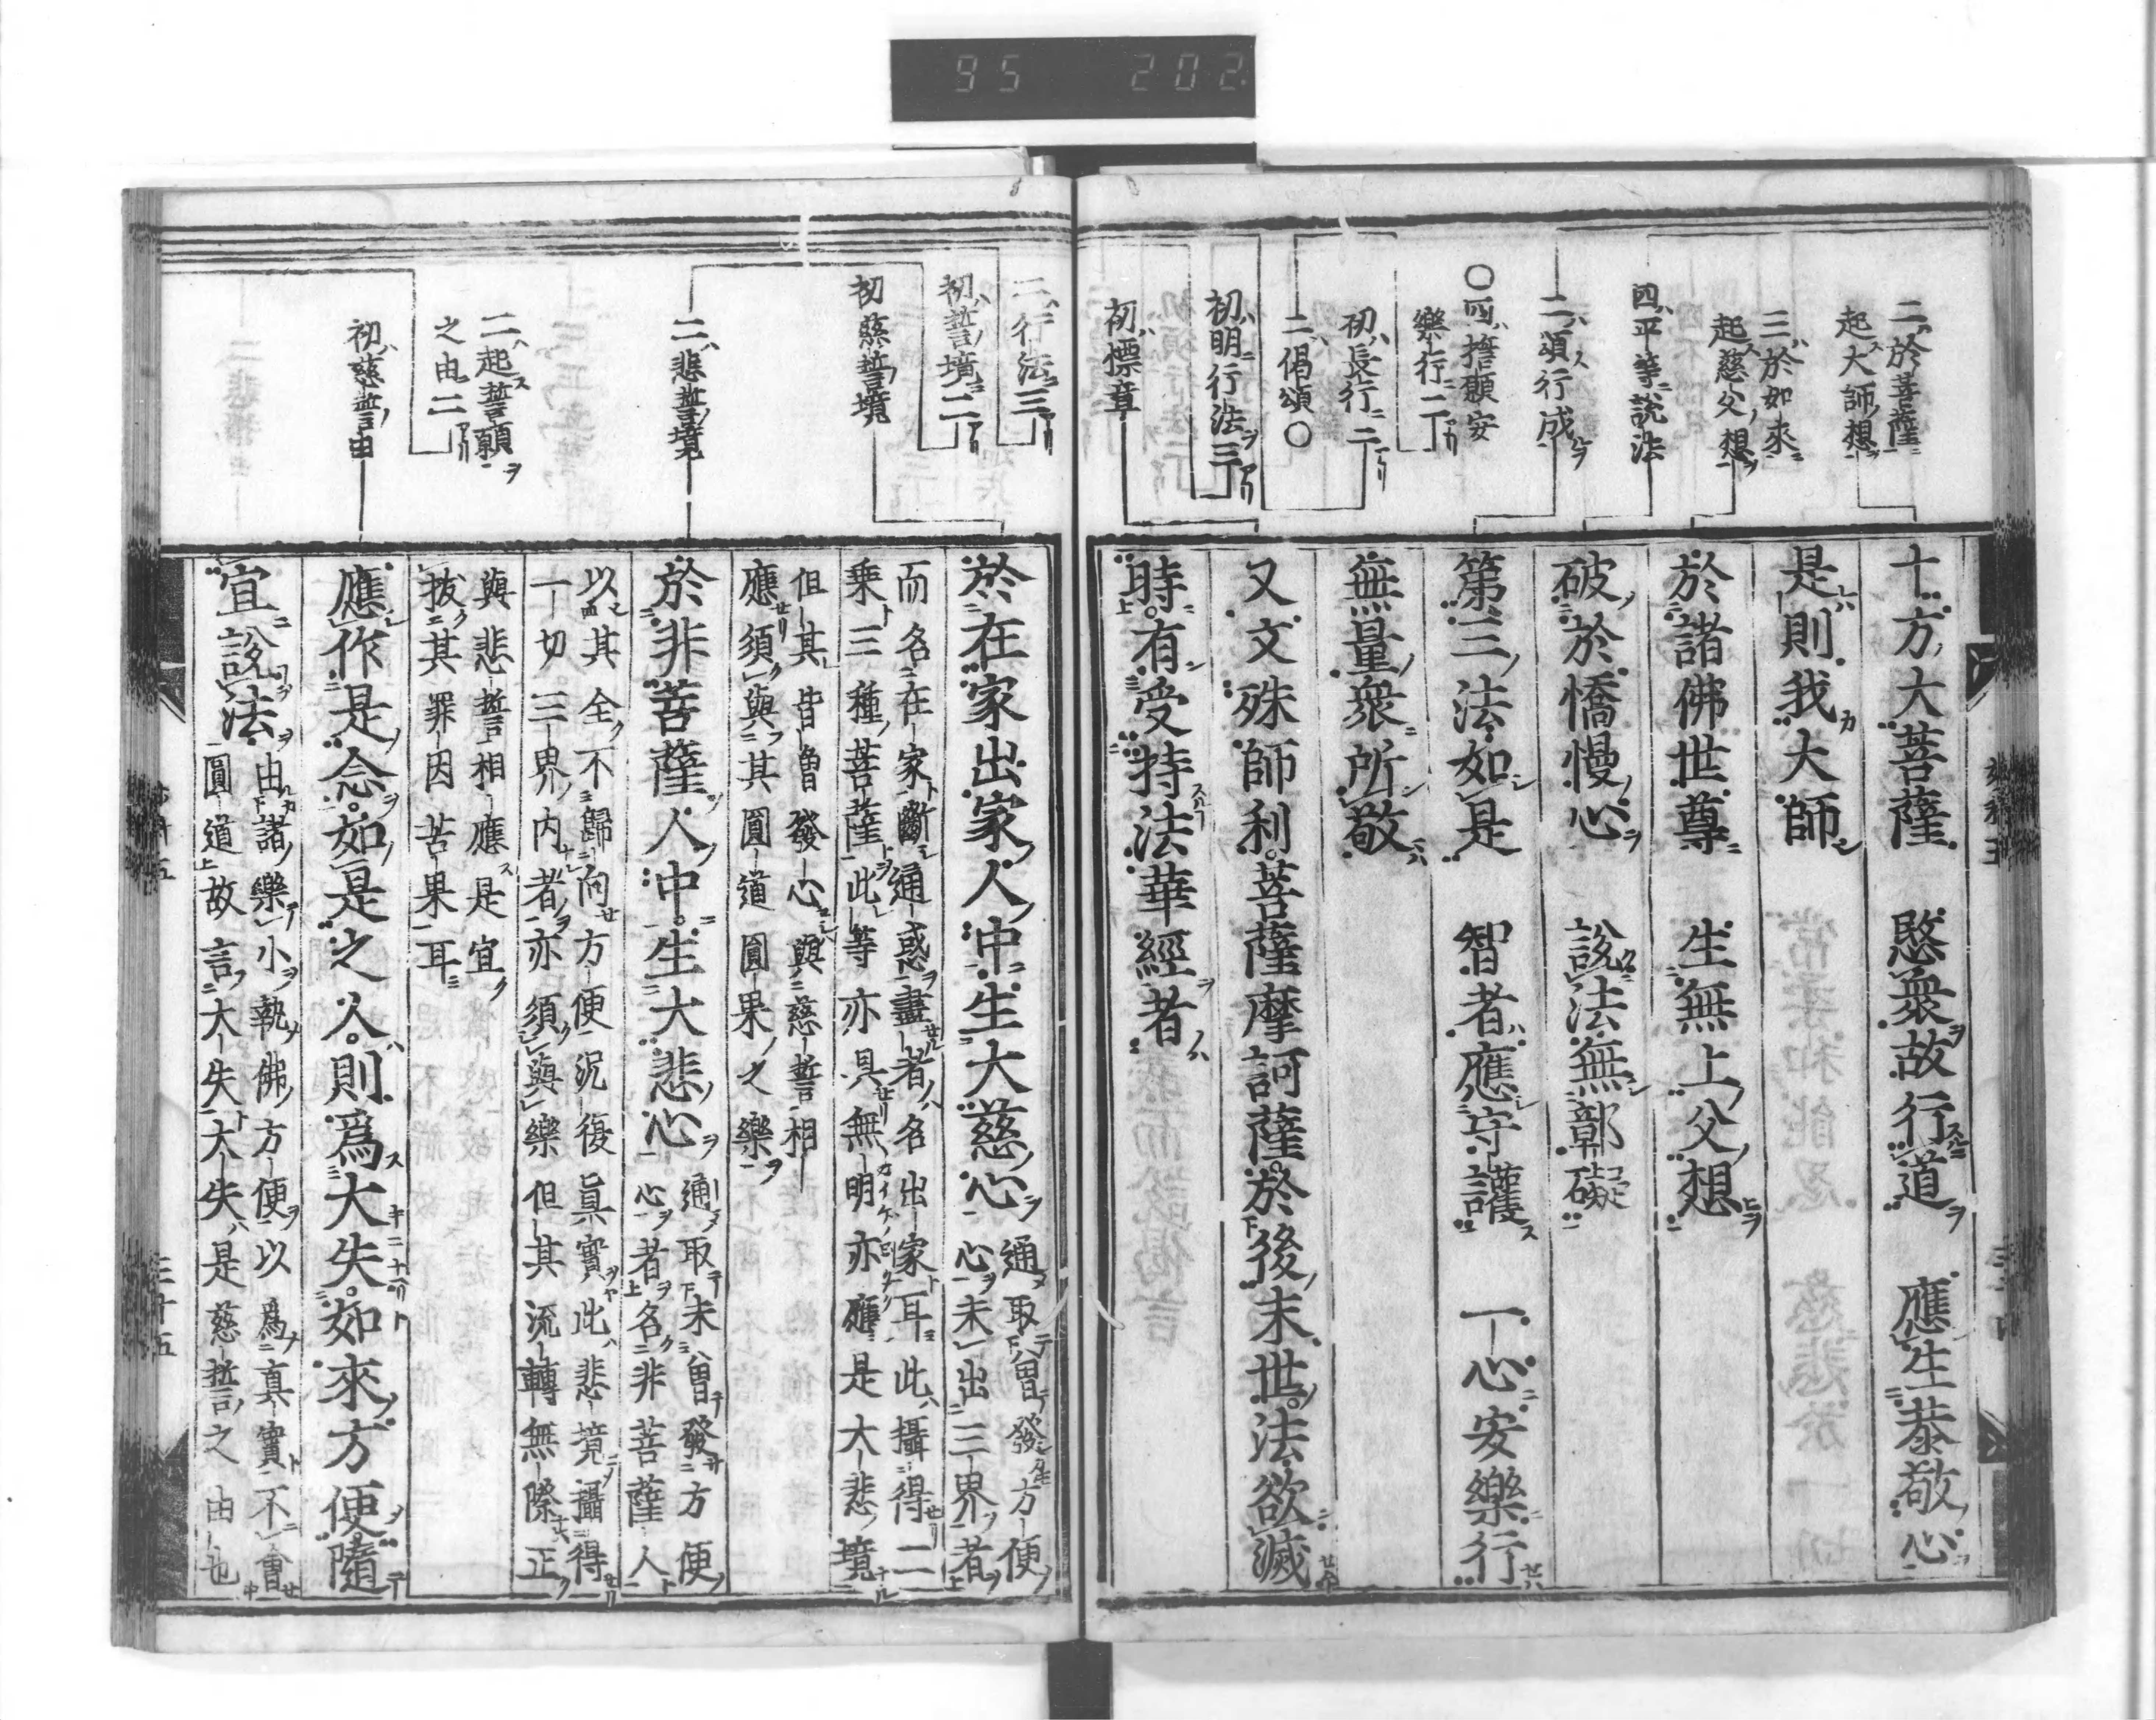 95 202
二於菩薩
起大師想
三於如來
起慈父想
四平等說法
二頌行成
○四誓願安
樂行二
初長行二
二偈頌○
初明行法三
初標章
十方大菩薩 愍衆故行道 應生恭敬心
是則我大師
於諸佛世尊 生無上父想
破於憍慢心 說法無鄣礙
第三法如是 智者應守護 一心安樂行
無量衆所敬
又文殊師利菩薩摩訶薩於後末世法欲滅
時有受持法華經者
二行法三
初誓境二
初慈誓境
二悲誓境
二起誓願
之由二
初慈誓由
於在家出家人中生大慈心
通取曾發方便
心未出三界者
而名在家斷通惑盡者名出家耳此攝得二
乘三種菩薩此等亦具無明亦應是大悲境
但其皆曾發心與慈誓相
應須與其圓道圓果之樂
於非菩薩人中生大悲心
通取未曾發方便
心者名非菩薩人
以其全不歸向方便況復眞實此悲境攝得
一切三界內者亦須與樂但其流轉無際正
與悲誓相應是宜
拔其罪因苦果耳
應作是念如是之人則爲大失如來方便隨
宜說法
由諸樂小執佛方便以爲真實不會
圓道故言大失大失是慈誓之由也
三十五